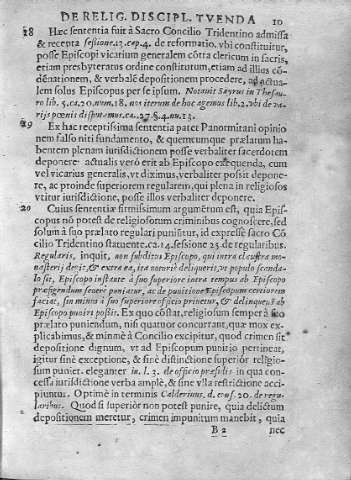 DE RELIG. DISCIPL. TVENDA 10
18 Hæc sententia fuit à Sacro Concilio Tridentino admissa
& recepta sessione.13.cap.4. de reformatio. vbi constituitur,
posse Episcopi vicarium generalem cõtra clericum in sacris,
etiam presbyteratus ordine constitutum, etiam ad illius cõ-
dẽnationem, & verbalẽ depositionem procedere, ad actua-
lem solus Episcopus per se ipsum. Notauit Sayrus in Thesau-
ro lib. 5. ca.20.num.18. nos iterum de hoc agemus lib.2.vbi de va-
rijs pœnis disputamus.ca.27.§.4.nu.13.
19 Ex hac receptissima sententia patet Panormitani opinio
nem falso niti fundamento, & quemcumque prælatum ha-
bentem plenam iurisdictionem posse verbaliter sacerdorem
deponere actualis verò erit ab Episcopo exequenda, cum
vel vicarius generalis, vt diximus, verbaliter possit depone-
re, ac proinde superiorem regularem, qui plena in religiosos
vtitur iurisdictione, posse illos verbaliter deponere.
20 Cuius sententiæ firmissimum argumẽtum est, quia Epis-
copus nõ potest de religiosorum criminibus cognoscere, sed
solum à suo prælato regulari puniũtur, id expresse sacro Cõ
cilio Tridentino statuente.ca.14.sessione 25.de regularibus.
Regularis, inquit, non subditus Episcopo, qui intra claustra mo-
nasterij degit, & extra ea, ita notoriè deliquerit, vt populo scanda-
lo sit, Episcopo instante à suo superiore intra tempus ab Episcopo
præfigendum seuere puniatur, ac de punitione Episcopum certiorem
faciat, sin minus à suo superiore officio priuetur, & delinquens ab
Episcopo puniri possit. Ex quo cõstat, religiosum semper à suo
prælato puniendum, nisi quatuor concurrant, quæ mox ex-
plicabimus, & minimè à Concilio excipitur, quod crimen sit
depositione dignum, vt ad Episcopum punitio pertineat,
igitur sinè exceptione, & sinè distinctione superior religio-
sum puniet. eleganter in l. 3. de officio præsidis in qua con-
cessa iurisdictione verba amplè, & sine vlla restrictione acci-
piuntur. Optimè in terminis Calderinus. d. cons. 20. de regu-
laribus. Quod si superior non potest punire, quia delictum
depositionem meretur, crimen impunitum manebit, quia
B 2 nec